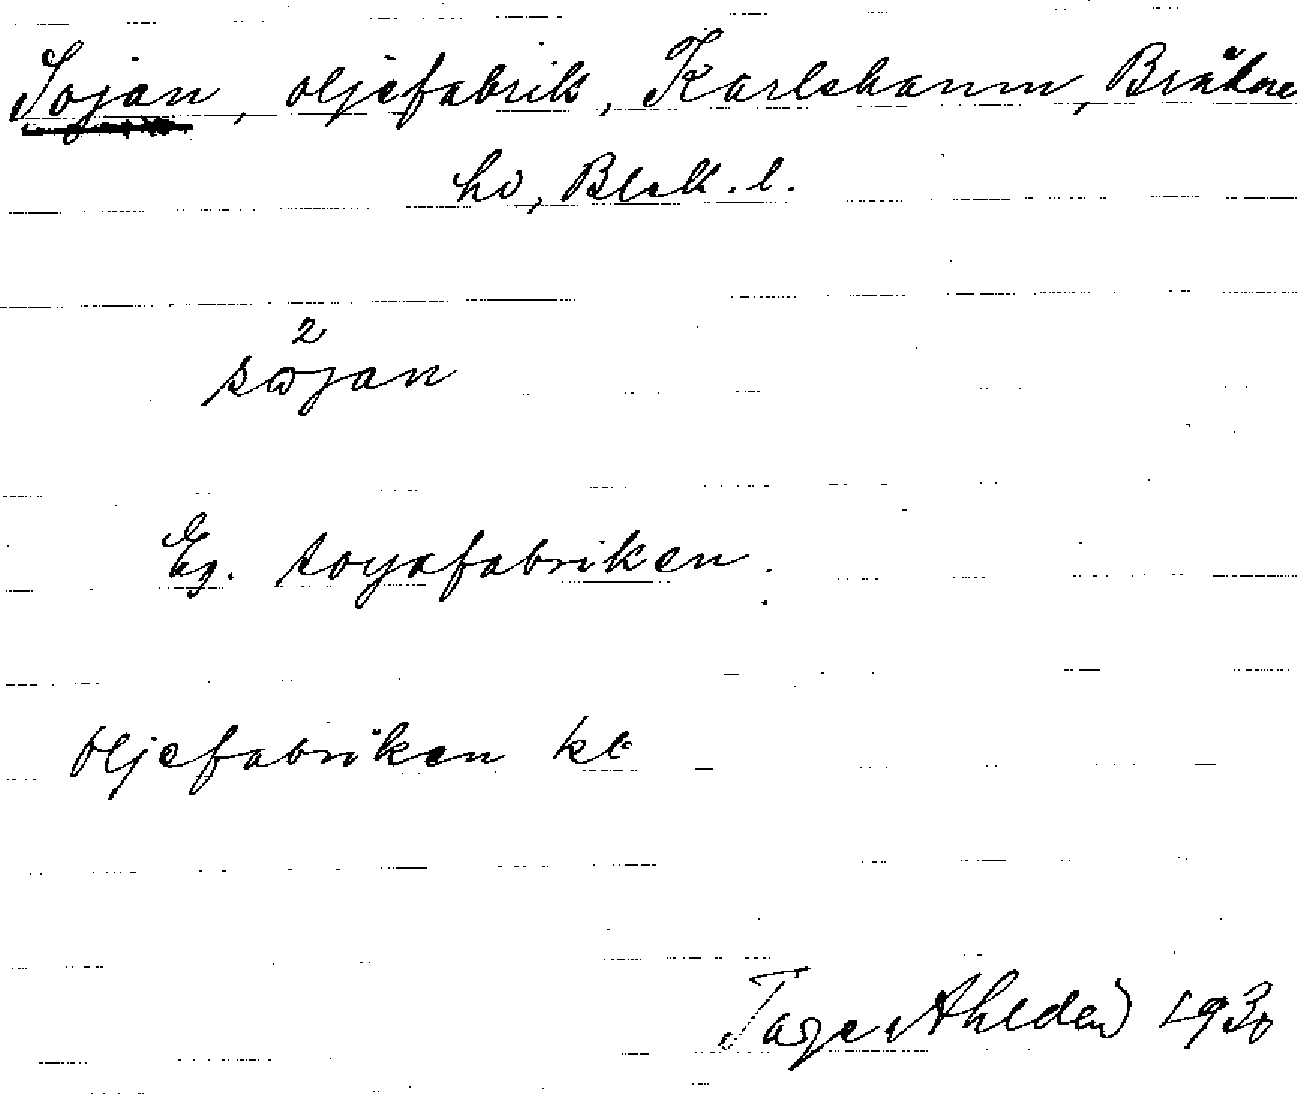 Sojan, oljefabrik, Karlshamn, Bräkne
hd, Blek. l.
2
sωjan
Eg. soyafabriken.
Oljefabriken kl
Tage Ahldén 1930